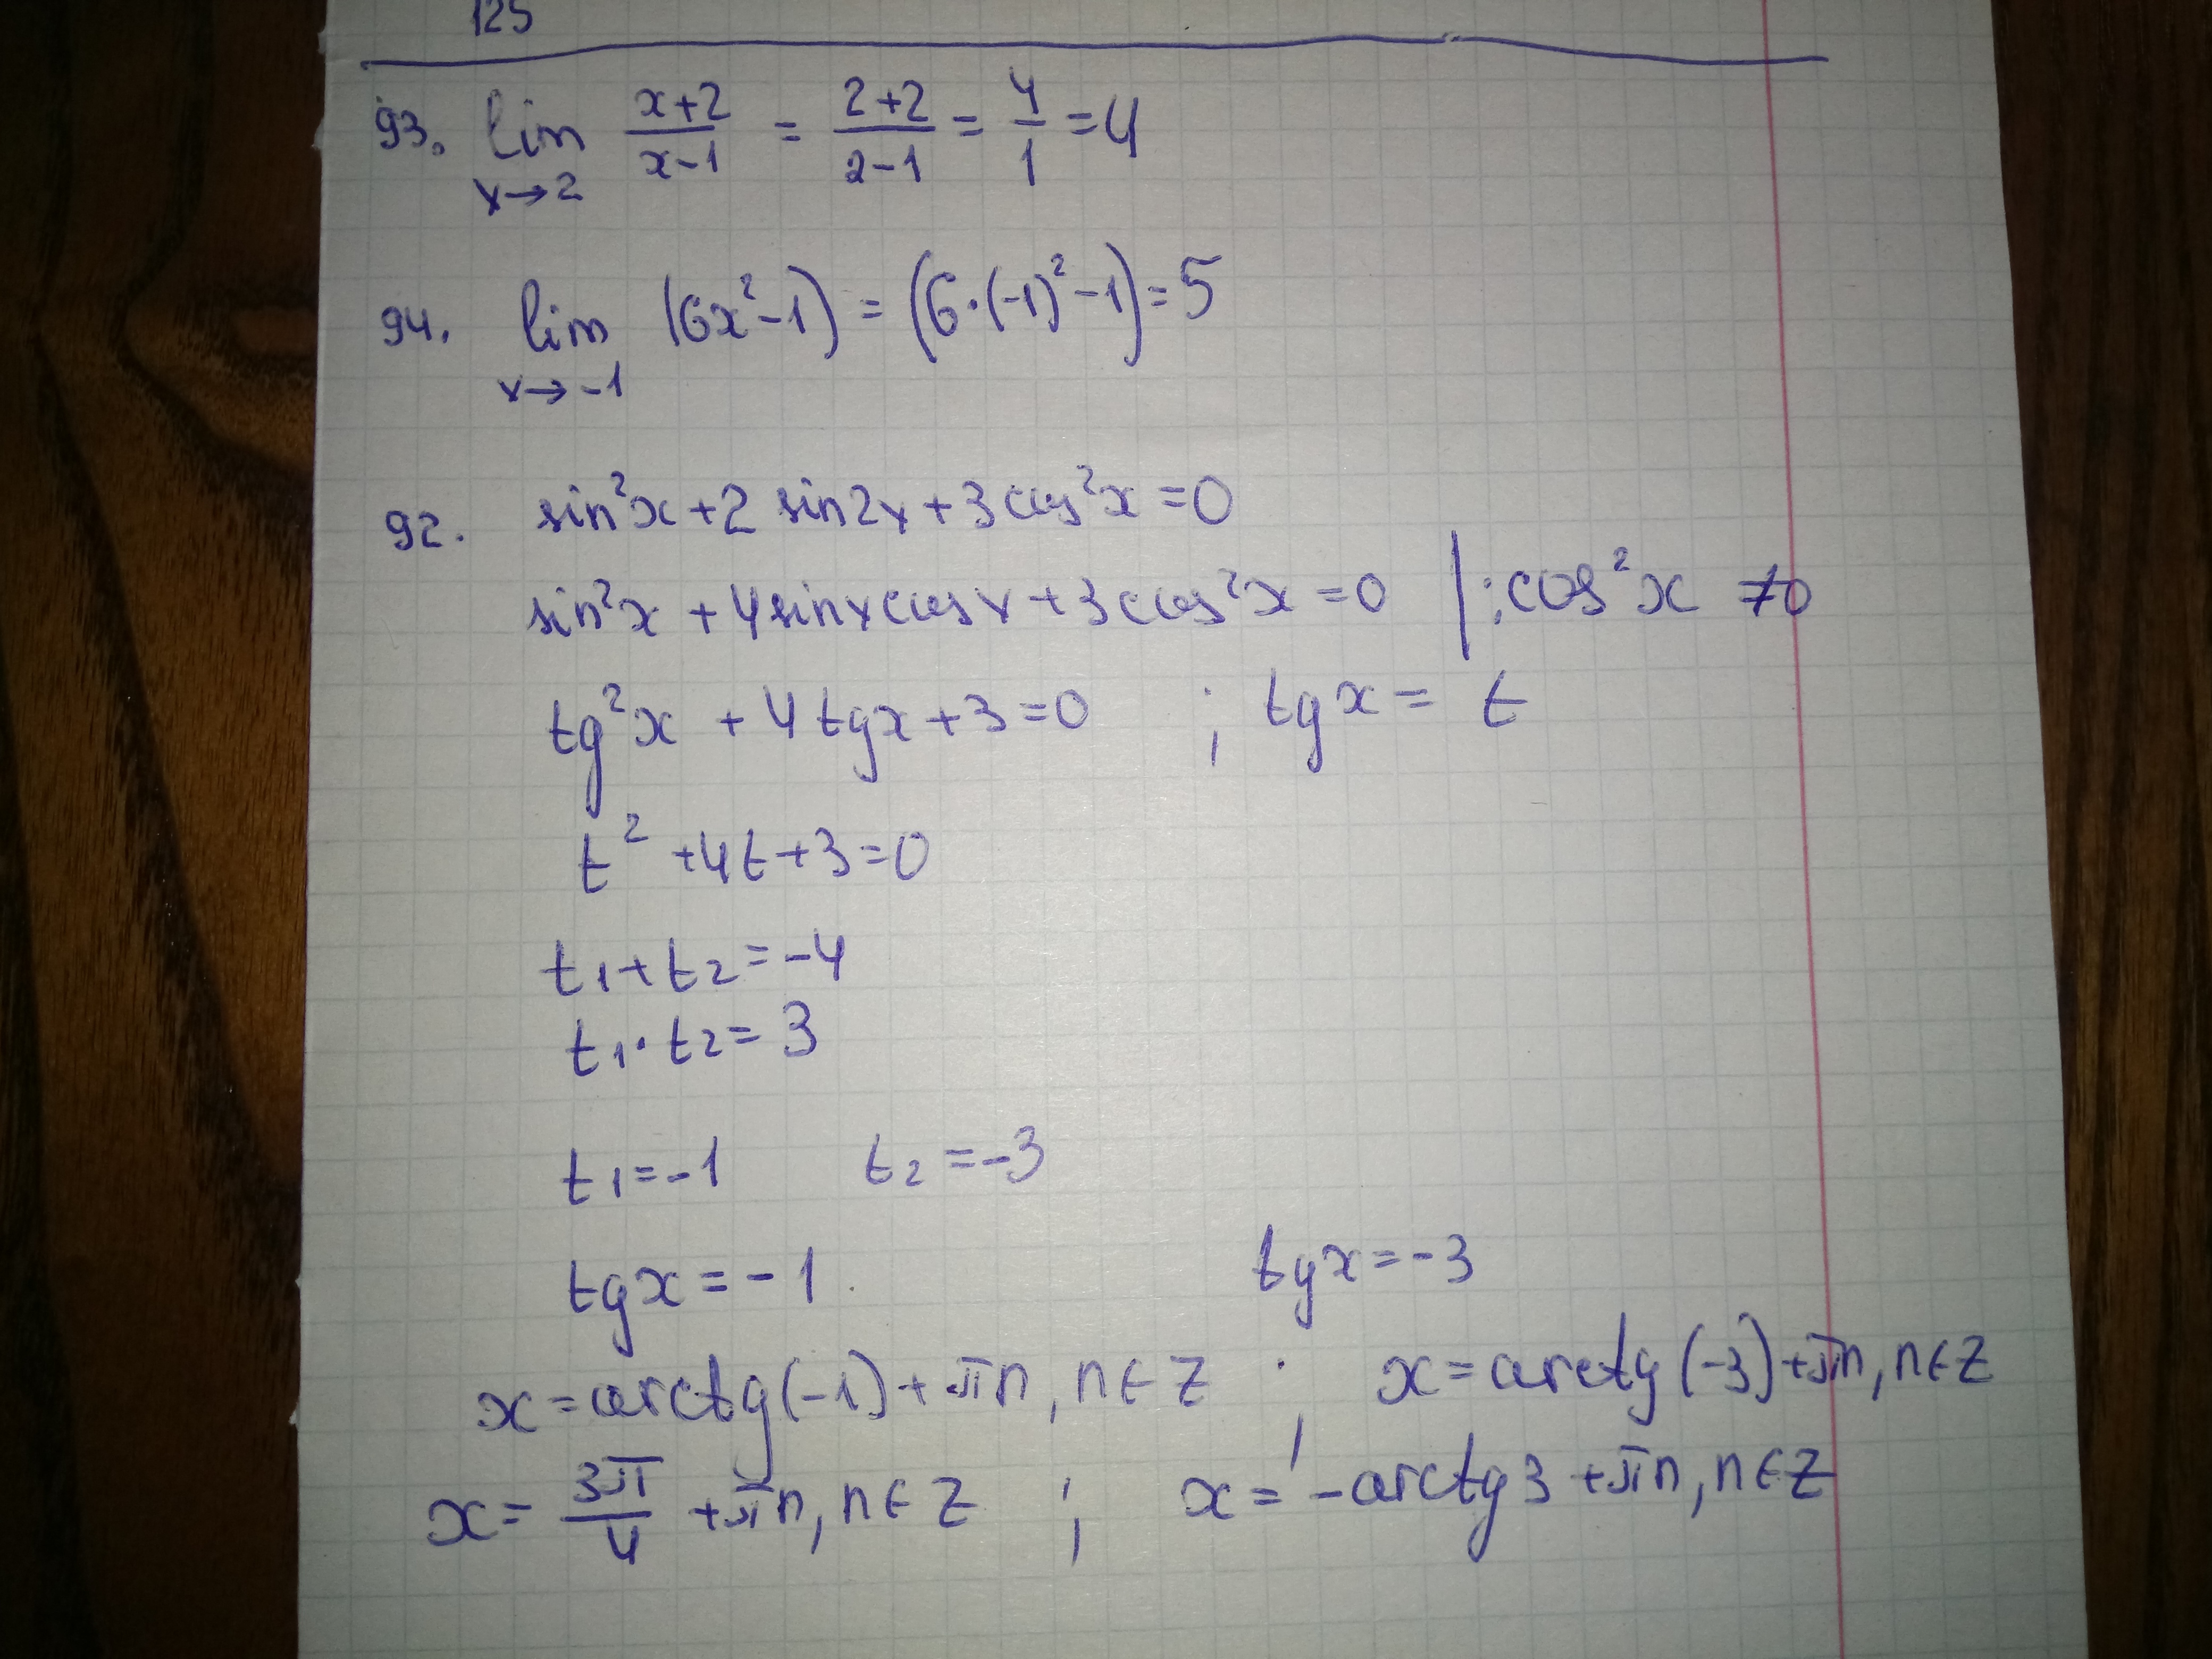 125
93. lim x→2 (x+2)/(x-1) = (2+2)/(2-1) = 4/1 = 4
94. lim x→-1 (6x²-1) = (6·(-1)²-1) = 5
92. sin²x + 2 sin2x + 3cos²x = 0
sin²x + 4sinxcosx + 3cos²x = 0 | :cos²x ≠0
tg²x + 4tgx + 3 = 0 ; tgx = t
t² + 4t + 3 = 0
t₁ + t₂ = -4
t₁ · t₂ = 3
t₁ = -1 t₂ = -3
tgx = -1. tgx = -3
x = arctg(-1) + πn, n∈Z ; x = arctg(-3) + πn, n∈Z
x = 3π/4 + πn, n∈Z ; x = -arctg3 + πn, n∈Z